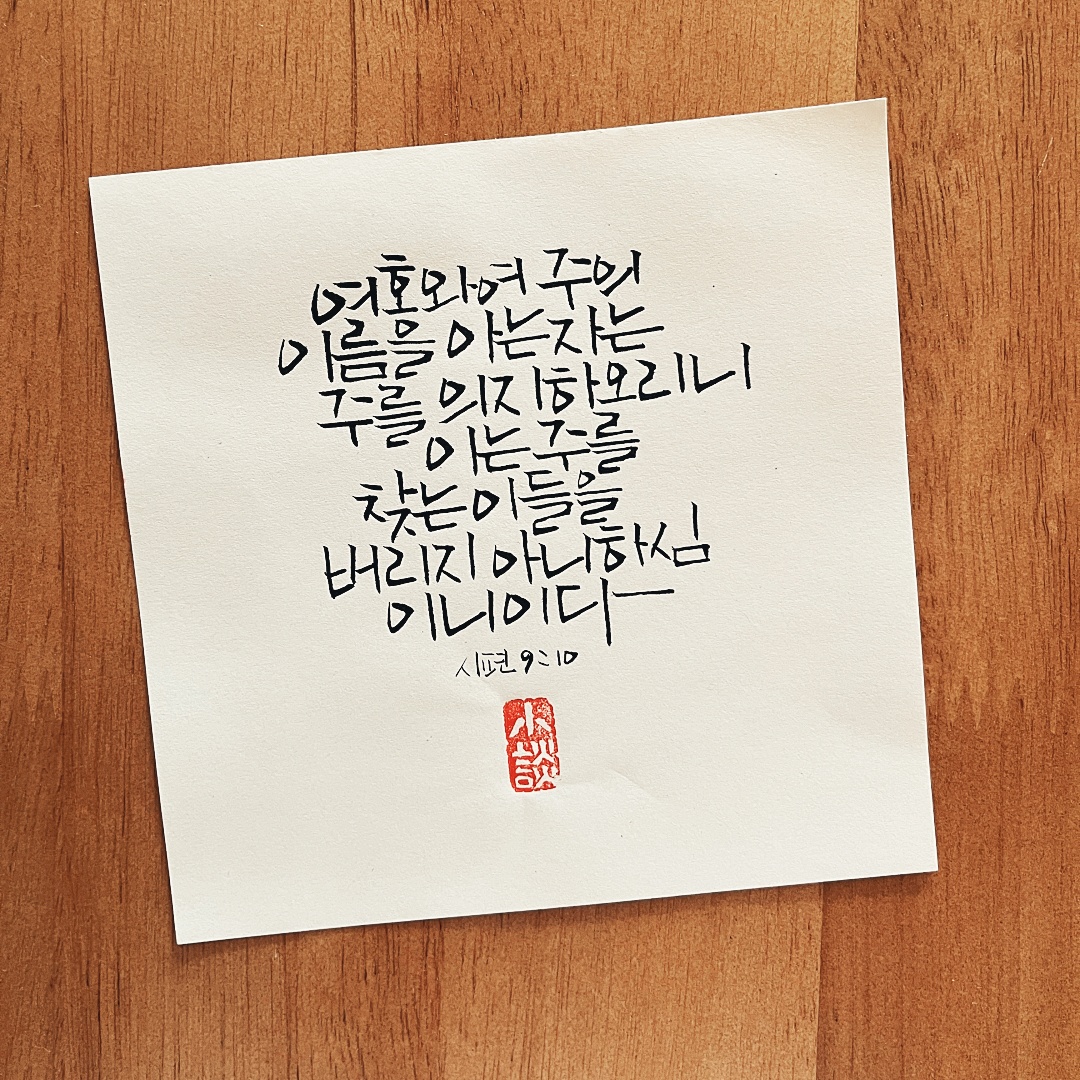 여호와여 주의
이름을 아는 자는
주를 의지하오리니
이는 주를
찾는 이들을
버리지 아니하심
이니이다
시편 9:10
小談